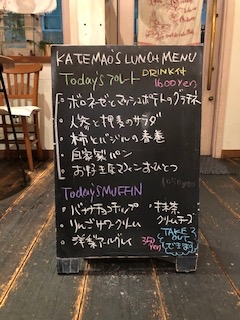 KATEMAO'S LUNCH MENU
Today'sプレート DRINK付 1600yen
・ボロネーゼとマッシュポテトのグラタン
・人参と押麦のサラダ
・柿とバジルの春巻
・自家製パン
・お好きなマフィンおひとつ
Today's MUFFIN
・バナナチョコチップ
・りんごサワークリーム
・洋梨アールグレイ
・抹茶クリームチーズ
350yen
TAKE OUT できます